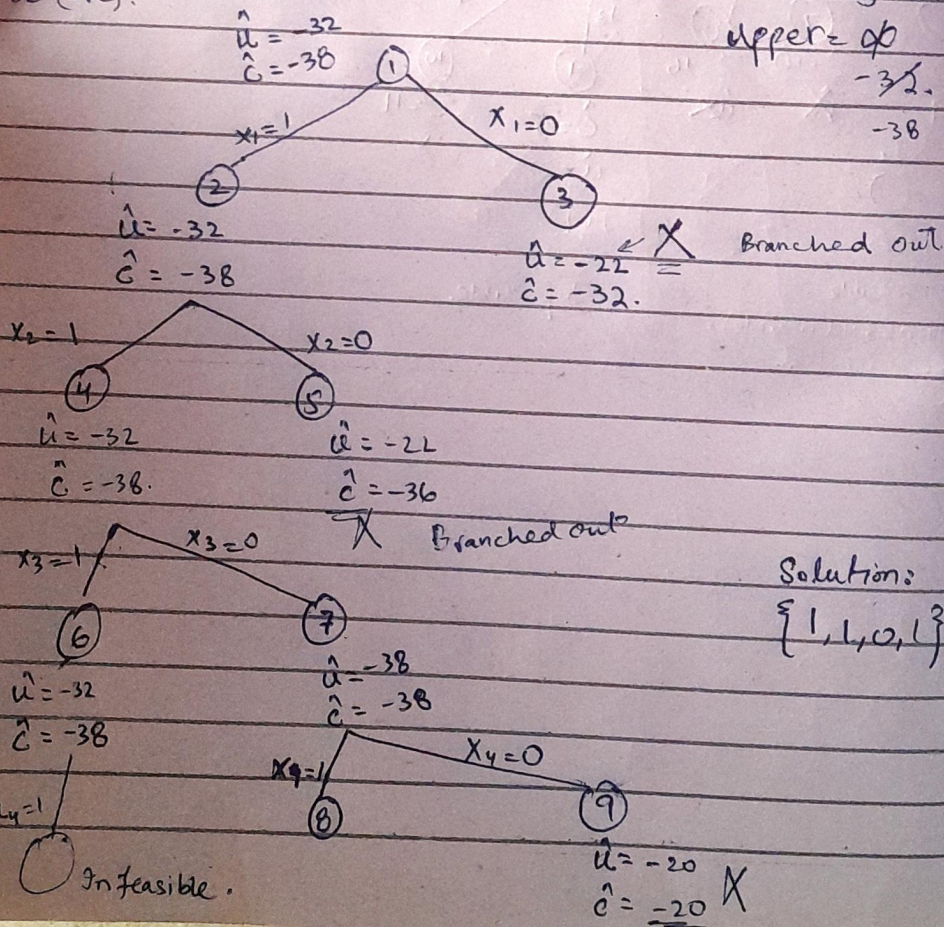 û = -32
ĉ = -38
1
upper = ∞
-32.
-38
x1=1
x1=0
2
3
û = -32
ĉ = -38
û = -22 X
ĉ = -32.
Branched out
x2=1
x2=0
4
5
û = -32
ĉ = -38.
û = -22
ĉ = -36
X Branched out
x3=1
x3=0
Solution:
{1,1,0,1}
6
7
û = -32
ĉ = -38
û = -38
ĉ = -38
x4=1
x4=0
4=1
8
9
Infeasible.
û = -20
ĉ = -20 X